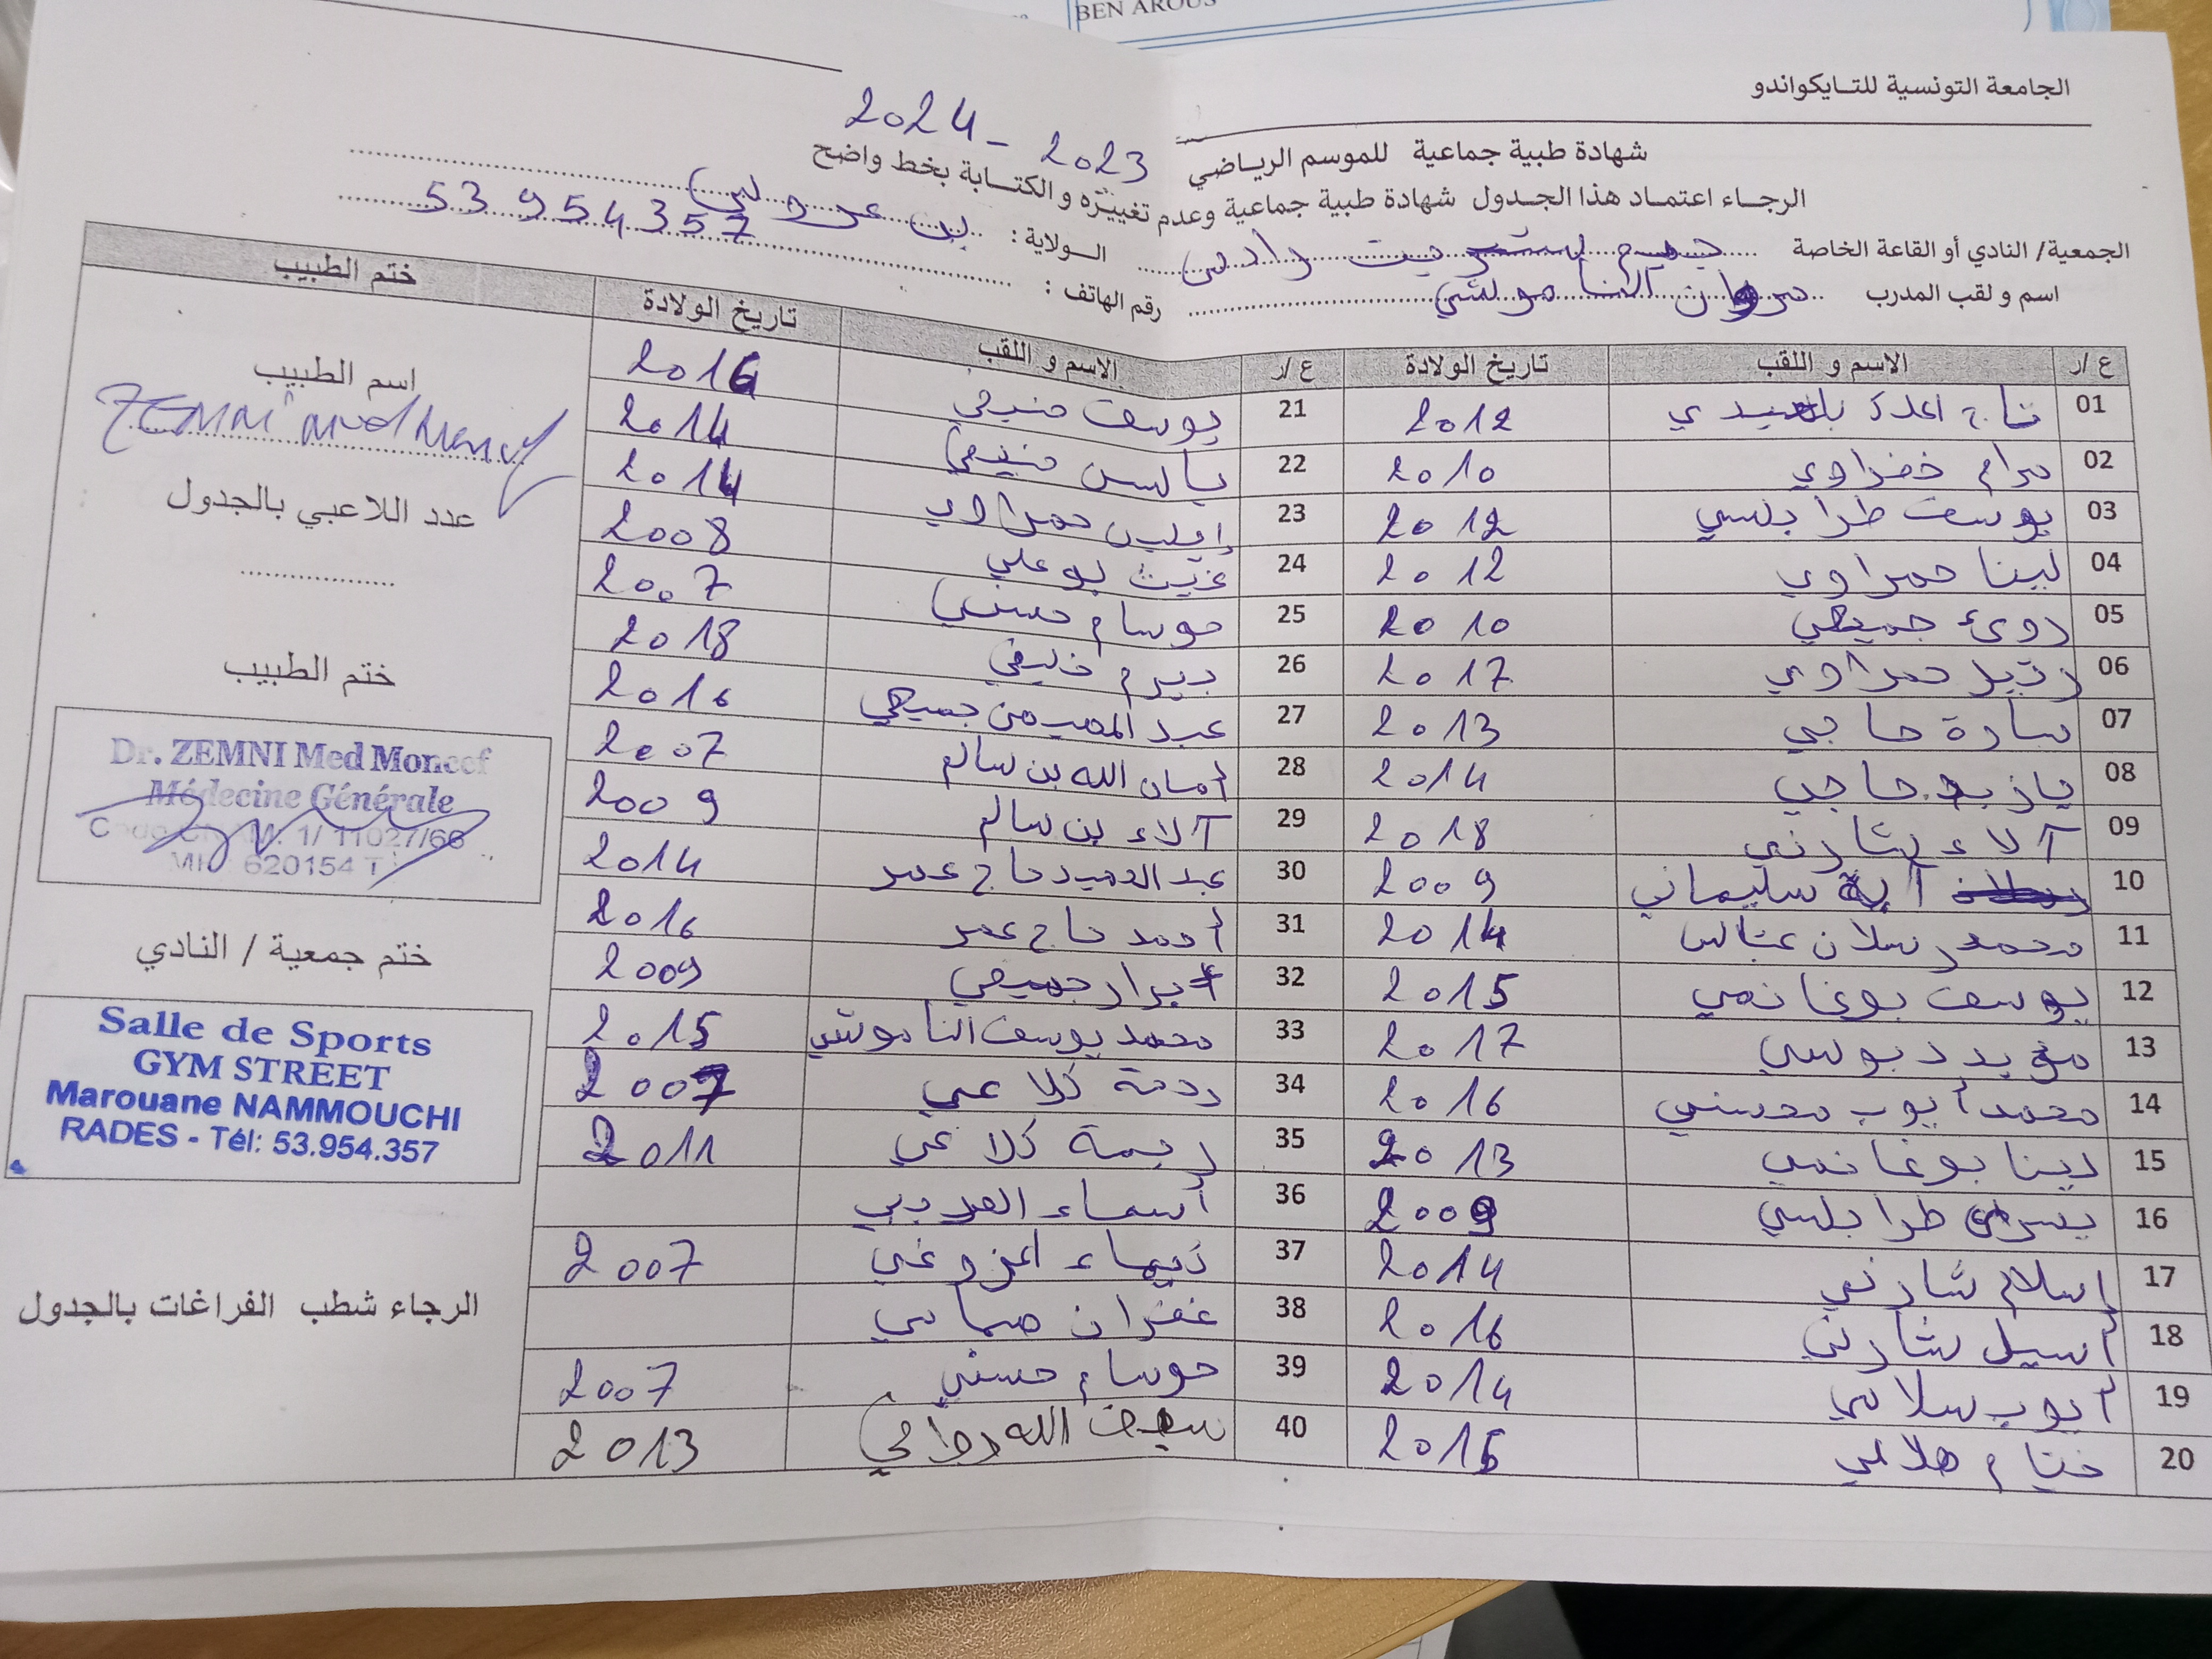 BEN AROUS
الجامعة التونسية للتـايكواندو
شهادة طبية جماعية للموسم الرياضي 2023 - 2024
الرجـاء اعتمـاد هذا الجـدول شهادة طبية جماعية وعدم تغييـره و الكتـابة بخط واضح
الجمعية/ النادي أو القاعة الخاصة جيم ستريت رادس الـولاية : بن عروس
اسم و لقب المدرب مروان الناموشي رقم الهاتف : 53 954 357
ع /ر الاسم و اللقب تاريخ الولادة ع /ر الاسم و اللقب تاريخ الولادة ختم الطبيب
01 تاج 2012
02 مرام خضراوي 2010
03 يوسف طرابلسي 2012
04 لينا حمراوي 2012
05 جميعي 2010
06 رتيل حمراوي 2017
07 سارة حاجي 2013
08 يازيد حاجي 2014
09 آلاء شارني 2018
10 آية سليماني 2009
11 محمد رسلان 2014
12 يوسف بوغانمي 2015
13 مؤيد دبوسي 2017
14 محمد أيوب محسني 2016
15 لينا بوغانمي 2013
16 يسرى طرابلسي 2009
17 إسلام شارني 2014
18 أسيل شارني 2016
19 أيوب سلامي 2014
20 ختام هلالي
21 يوسف منيفي 2016
22 ياسين منيفي 2014
23 إيلين حمراوي 2014
24 غيث بوعلي 2008
25 حوسام حسني 2007
26 بيرم خليفي 2018
27 عبد المهيمن جميعي 2016
28 أمان الله بن سالم 2007
29 آلاء بن سالم 2009
30 عبد الحميد حاج عمر 2014
31 أحمد حاج عمر 2016
32 أبرار جميعي 2009
33 محمد يوسف الناموشي 2015
34 رحمة كلاعي 2007
35 ريمة كلاعي 2011
36 أسماء
37 المزوغي 2007
38 غفران
39 حوسام حسني 2007
40 سيف الله 2013
اسم الطبيب
ZEMNI Med Moncef
عدد اللاعبي بالجدول
ختم الطبيب
Dr. ZEMNI Med Moncef
Médecine Générale
Code CNAM: 1/ 11027/66
620154 T
ختم جمعية / النادي
Salle de Sports
GYM STREET
Marouane NAMMOUCHI
RADES - Tél: 53.954.357
الرجاء شطب الفراغات بالجدول